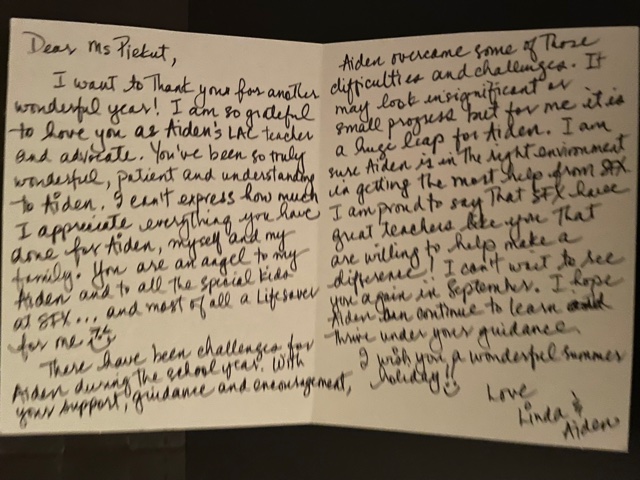 Dear Ms Piekut,
I want to thank you for another
wonderful year! I am so grateful
to have you as Aiden's LAC teacher
and advocate. You've been so truly
wonderful, patient and understanding
to Aiden. I can't express how much
I appreciate everything you have
done for Aiden, myself and my
family. You are an angel to my
Aiden and to all the special kids
at SFX... and most of all a Lifesaver
for me
There have been challenges for
Aiden during the school year. With
your support, guidance and encouragement,
Aiden overcame some of those
difficulties and challenges. It
may look insignificant or
small progress but for me it is
a huge leap for Aiden. I am
sure Aiden is in the right environment
in getting the most help from SFX.
I am proud to say that SFX have
great teachers like you that
are willing to help make a
difference! I can't wait to see
you again in September. I hope
Aiden can continue to learn and
thrive under your guidance.
I wish you a wonderful summer
holiday!!
Love
Linda &
Aiden